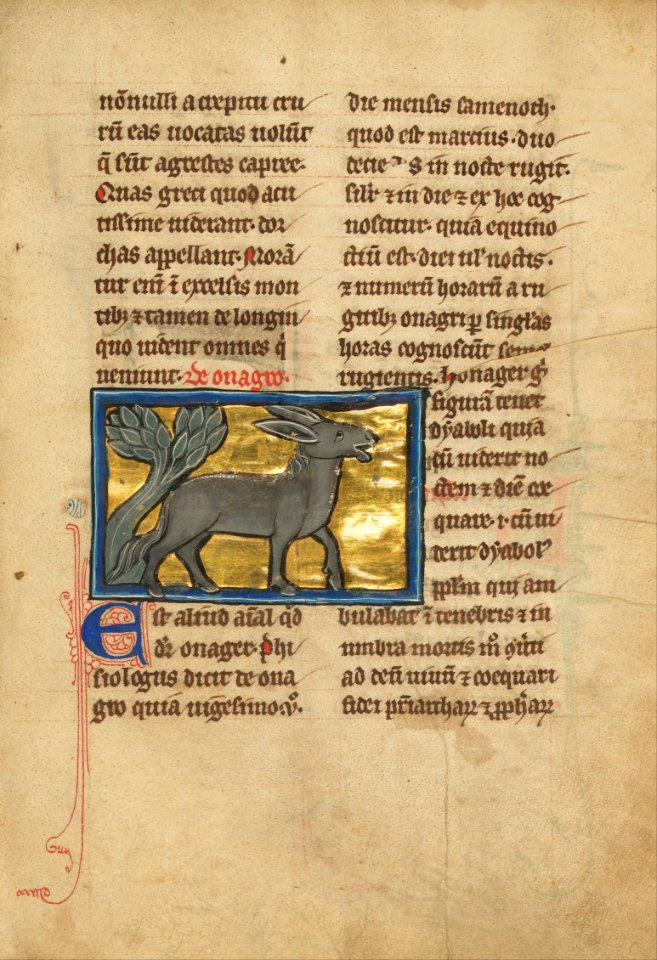 nōnulli a crepitu cru
rū eas uocatas uolūt
q̄ sūt agrestes capree.
Quas greci quod acu
tissime uiderant. dor
chas appellant. Morā
tur enī ī excelsis mon
tibꝫ ⁊ tamen de longin
quo uident omnes q̄
ueniunt. de onagro.
Est aliud aīal qd̄
dr̄ onager. Phi
siologus dicit de ona
gro quia uigesimo.
die mensis famenoth.
quod est marcius. duo
decies in nocte rugit.
silr̄ ⁊ in die ⁊ ex hoc cog
noscitur. quia equino
ctiū est. diei ul̄ noctis.
⁊ numerū horarū a ru
gitibꝫ onagri ꝑ singlas
horas cognoscūt semel
rugientis. Honager
figurā tenet
dyaboli quia
cū uiderit no
ctem ⁊ diē coe
quare. i. cū ui
derit dyabol
ppl̄m qui am
bulabat ī tenebris ⁊ in
umbra mortis
ad deū uiuū ⁊ coequari
fidei